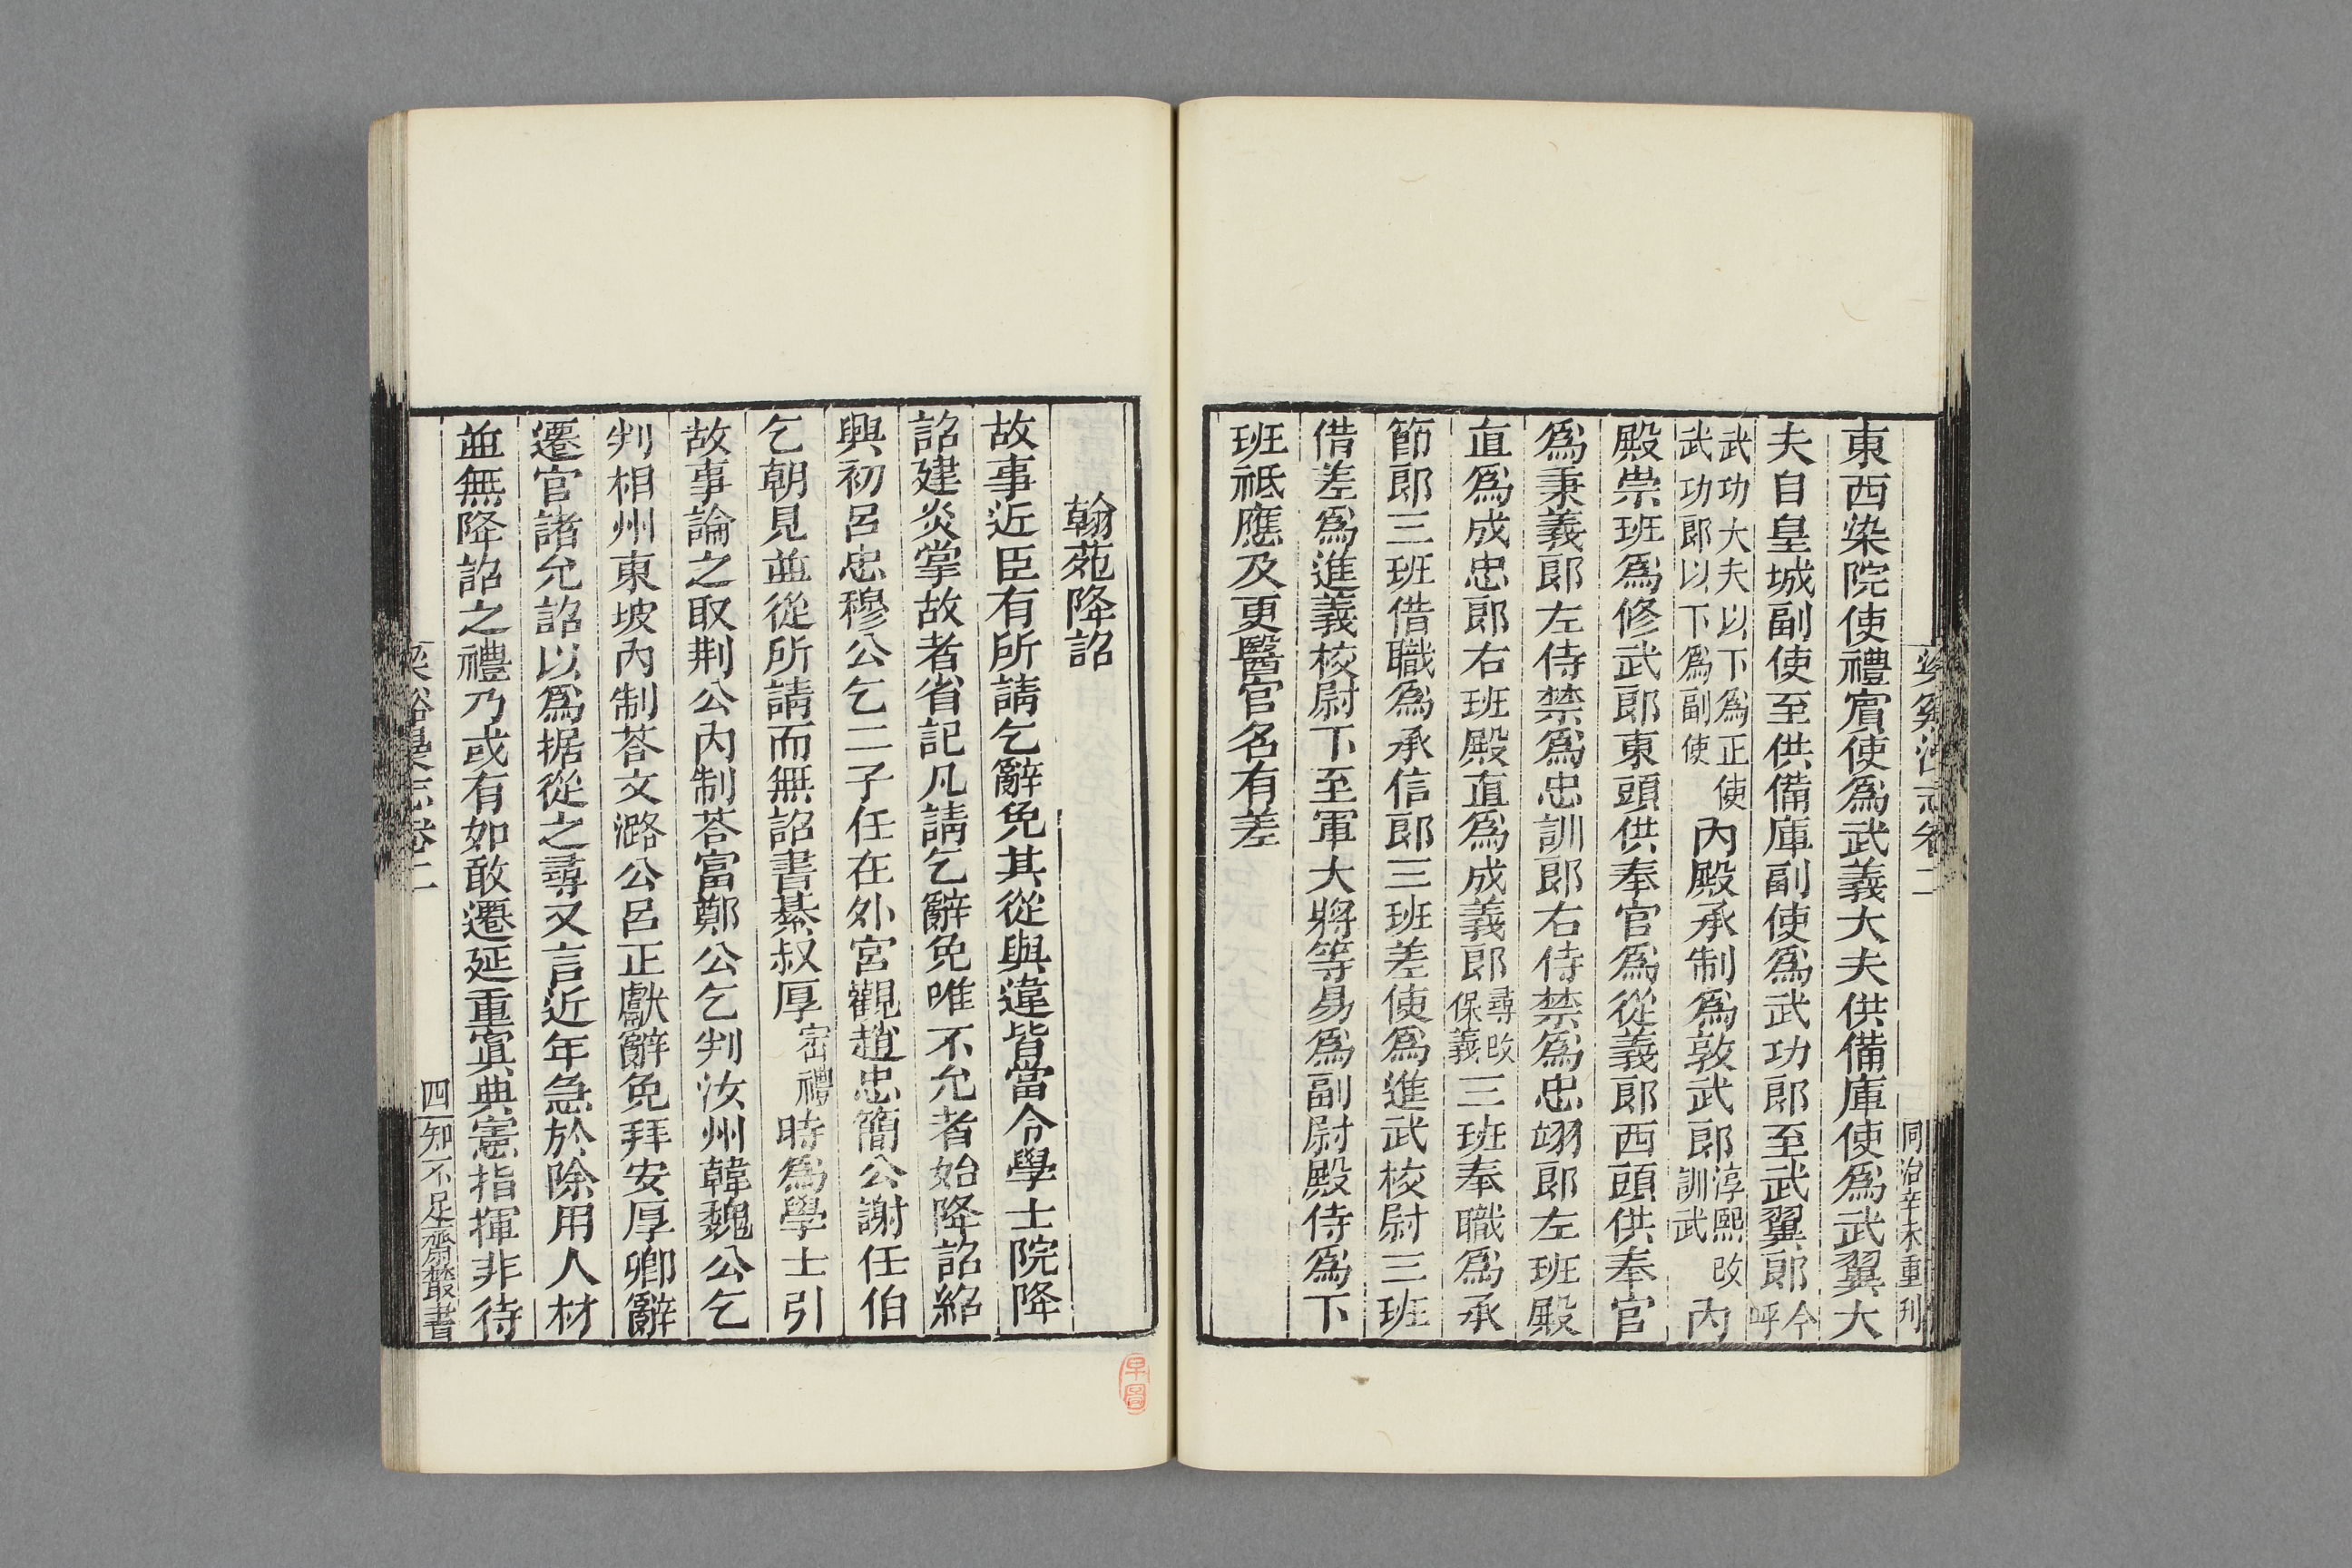 同治辛未重刊
東西染院使禮賓使爲武義大夫供備庫使爲武翼大
夫自皇城副使至供備庫副使爲武功郎至武翼郎今呼
武功大夫以下爲正使武功郎以下爲副使內殿承制爲敦武郎淳熙改訓武內
殿崇班爲修武郎東頭供奉官爲從義郎西頭供奉官
爲秉義郎左侍禁爲忠訓郎右侍禁爲忠翊郎左班殿
直爲成忠郎右班殿直爲成義郎尋改保義三班奉職爲承
節郎三班借職爲承信郎三班差使爲進武校尉三班
借差爲進義校尉下至軍大將等易爲副尉殿侍爲下
班祗應及更醫官名有差
翰苑降詔
故事近臣有所請乞辭免其從與違皆當令學士院降
詔建炎掌故者省記凡請乞辭免唯不允者始降詔紹
興初呂忠穆公乞二子任在外宮觀趙忠簡公謝任伯
乞朝見並從所請而無詔書綦叔厚崈禮時爲學士引
故事論之取荆公內制荅富鄭公乞判汝州韓魏公乞
判相州東坡內制荅文潞公呂正獻辭免拜安厚卿辭
遷官諸允詔以爲据從之尋又言近年急於除用人材
並無降詔之禮乃或有如敢遷延重寘典憲指揮非待
梁谿漫志卷二
四
知不足齋叢書
早圖